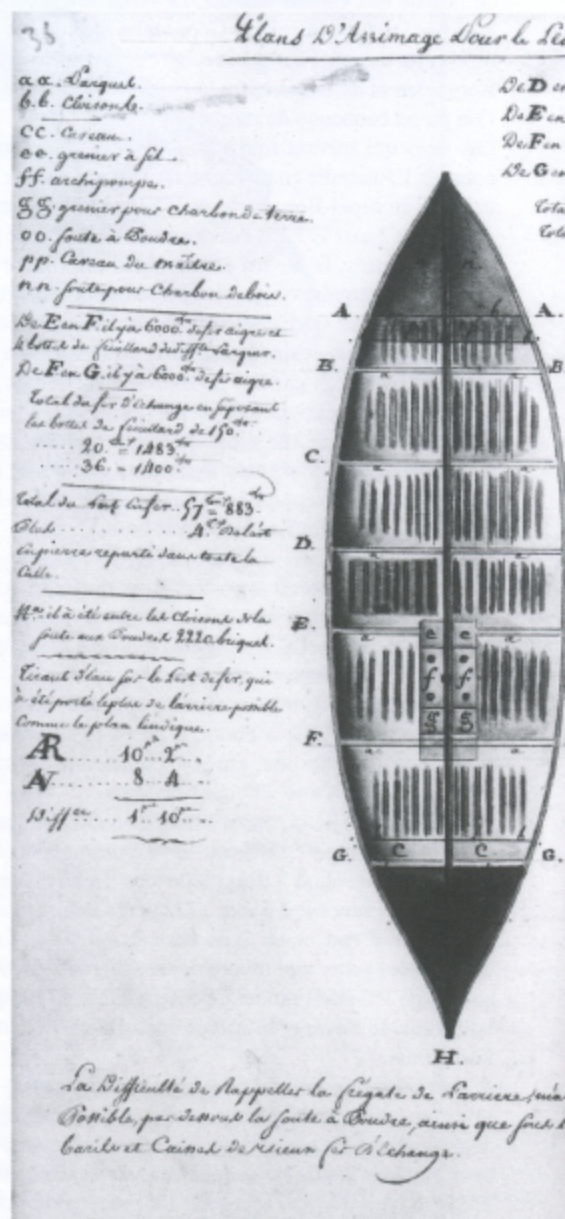 36
Plans D'Arrimage Pour le Les
a a. Parquet.
b. b. Cloisons.
CC. Caveau.
ee. grenier à sel.
ff. archipompe.
gg. grenier pour Charbon de terre.
oo. soute à Poudre.
pp. Caveau du maître.
nn. soute pour Charbon de bois.
De E en F. il y a 6000 de fer aigre et
4 bottes de feuillard de diffte Largeur.
De F en G. il y a 6000 de fer aigre.
Total du fer d'échange en suposant
les bottes de feuillard de 150.
20. = 1483
36. = 1400.
Total du Lest en fer. 57 = 883.
Plus 4. De lest
en pierre reparti dans toute la
Calle.
Na. il à été entre les Cloisons de la
soute aux Poudres 2220 briques.
Tirant d'eau sur le Lest de fer, qui
à été porté le plus de l'arriere possible
Comme le plan l'indique.
AR 10 2
AV 8 4
Differ 1 10
De D en
De E en
De F en
De G en
Tota
Tota
n
A. A.
b b
B. B.
a a
C.
a a
D.
a a
E.
a e e a
f f
g g
F.
a a
b b
G. C C G.
H.
La Difficulté de Rappeller la frégate de l'arriere, m'a
Possible, par dessous la soute à Poudre, ainsi que sous
barils et Caisses de vieux fer d'échange.